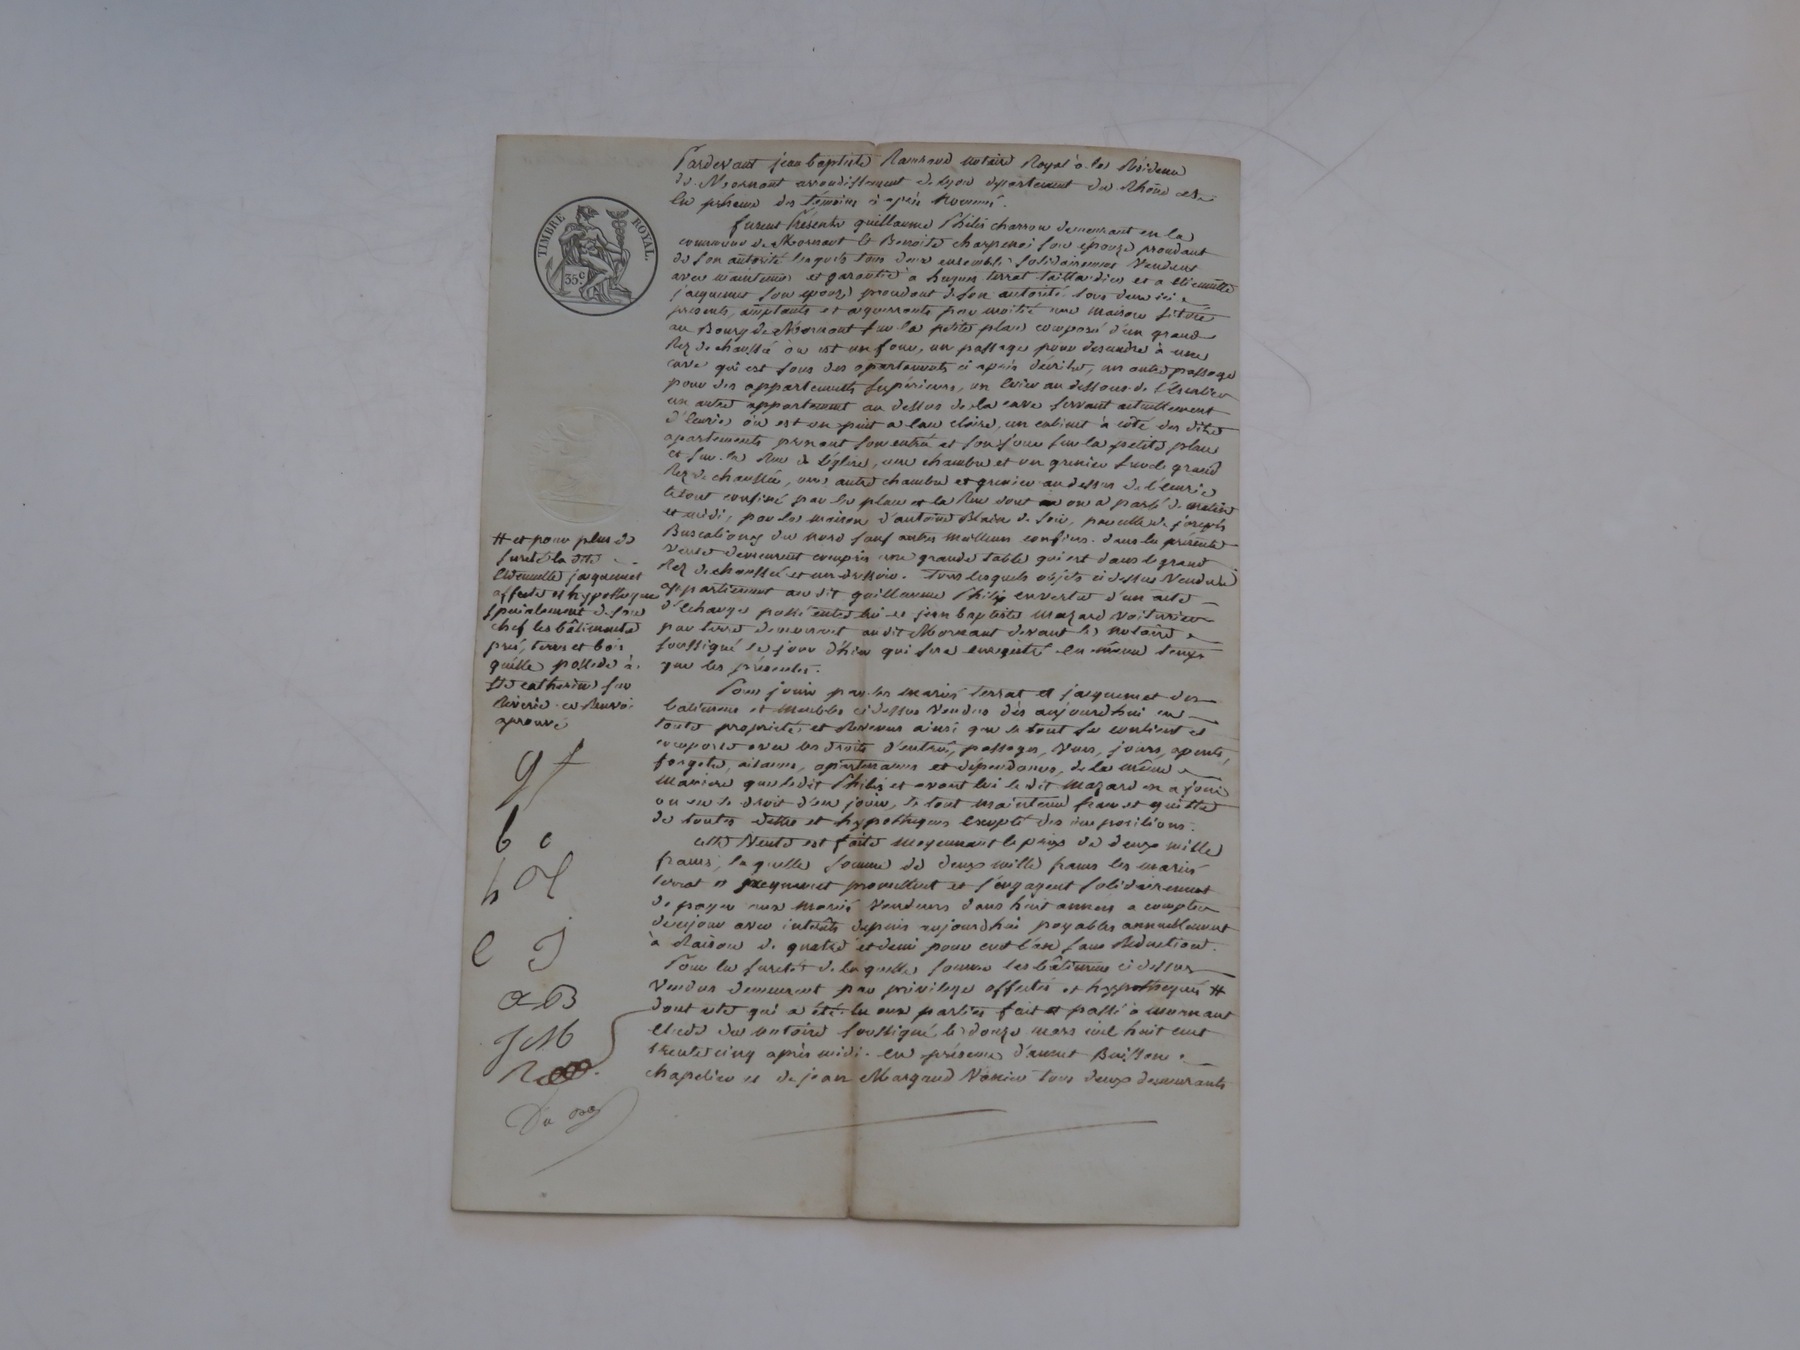 Pardevant jean baptiste notaire Royal à la Résidence
de Mornant arrondissement de Lyon département du Rhône et en
la présence des témoins ci après nommés.
furent Présents guillaume Philis charron demeurant en la
commune de Mornant et Benoite son épouse procédant
de son autorité lesquels tous deux ensemble solidairement Vendent
avec maintenue et garantie à hugues terrat taillandier et a etiennette
jacquemet son epouse procédant de son autorité tous deux ici
présents, acceptants et acquerreurs par moitié une maison située
au Bourg de Mornant sur la petite place composé d'un grand
Rez de chaussée où est un four, un passage pour descendre à une
cave qui est sous des apartements ci après décrits, un autre passage
pour des appartements supérieurs, un au dessous de l'escalier
un autre appartement au dessus de la cave servant actuellement
d'écurie où est un puit a eau claire, un cabinet à côté des dits
apartements prenant son entrée et son jour sur la petite place
et sur la Rue de l'église, une chambre et un grenier sur le grand
Rez de chaussée, une autre chambre et grenier au dessus de l'écurie
le tout confiné par la place et la Rue dont on a parlé de matin
et midi, par la maison d'antoine Blain de soir, par celle de joseph
du nord sauf autres meilleurs confins. dans la présente
vente demeurent compris une grande table qui est dans le grand
Rez de chaussée et un dressoir. Tous lesquels objets ci dessus vendus
appartiennent au dit guillaume Philis en vertu d'un acte
d'échange passé entre lui et jean baptiste mazard voiturier
par terre demeurant au dit Mornant devant le notaire
soussigné le jour d'hier qui sera enregistré en même temps
que les présentes.
Pour jouir par les mariés terrat et jacquemet des
batiments et meubles ci dessus vendus dès aujourdhui en
toute propriété et Revenus ainsi que le tout se contient et
comporte avec les droits d'entrée, passages, vues, jours,
forgets, aisances, apartenances et dépendances, de la même
manière que ledit Philis et avant lui le dit mazard en a joui
ou eu le droit d'en jouir, le tout maintenu franc et quitte
de toutes dettes et hypothèques excepté des impositions.
cette Vente est faite moyennant le prix de deux mille
francs, laquelle somme de deux mille francs les mariés
terrat et jacquemet promettent et s'engagent solidairement
de payer aux mariés vendeurs dans huit années a compter
de ce jour avec intérêts depuis aujourdhui payables annuellement
à Raison de quatre et demi pour cent l'an sans Réduction.
Pour la sureté de laquelle somme les bâtiments ci dessus
vendus demeurent par privilège affectés et hypothéqués #
dont acte qui a été lu aux parties fait et passé à mornant
etude du notaire soussigné le douze mars mil huit cent
trente cinq après midi. en présence d'annet Buisson
chapelier et de jean Margaud Vanier tous deux demeurants
TIMBRE ROYAL.
35 c.
# et pour plus de
sureté la dite
etiennette jacquemet
affecte et hypothèque
specialement de son
chef les bâtiments
pré, terres et bois
qu'elle possède à
Ste catherine sur
Riverie ce Renvoi
aprouvé
g f
b c
h t
e J
a B
J M